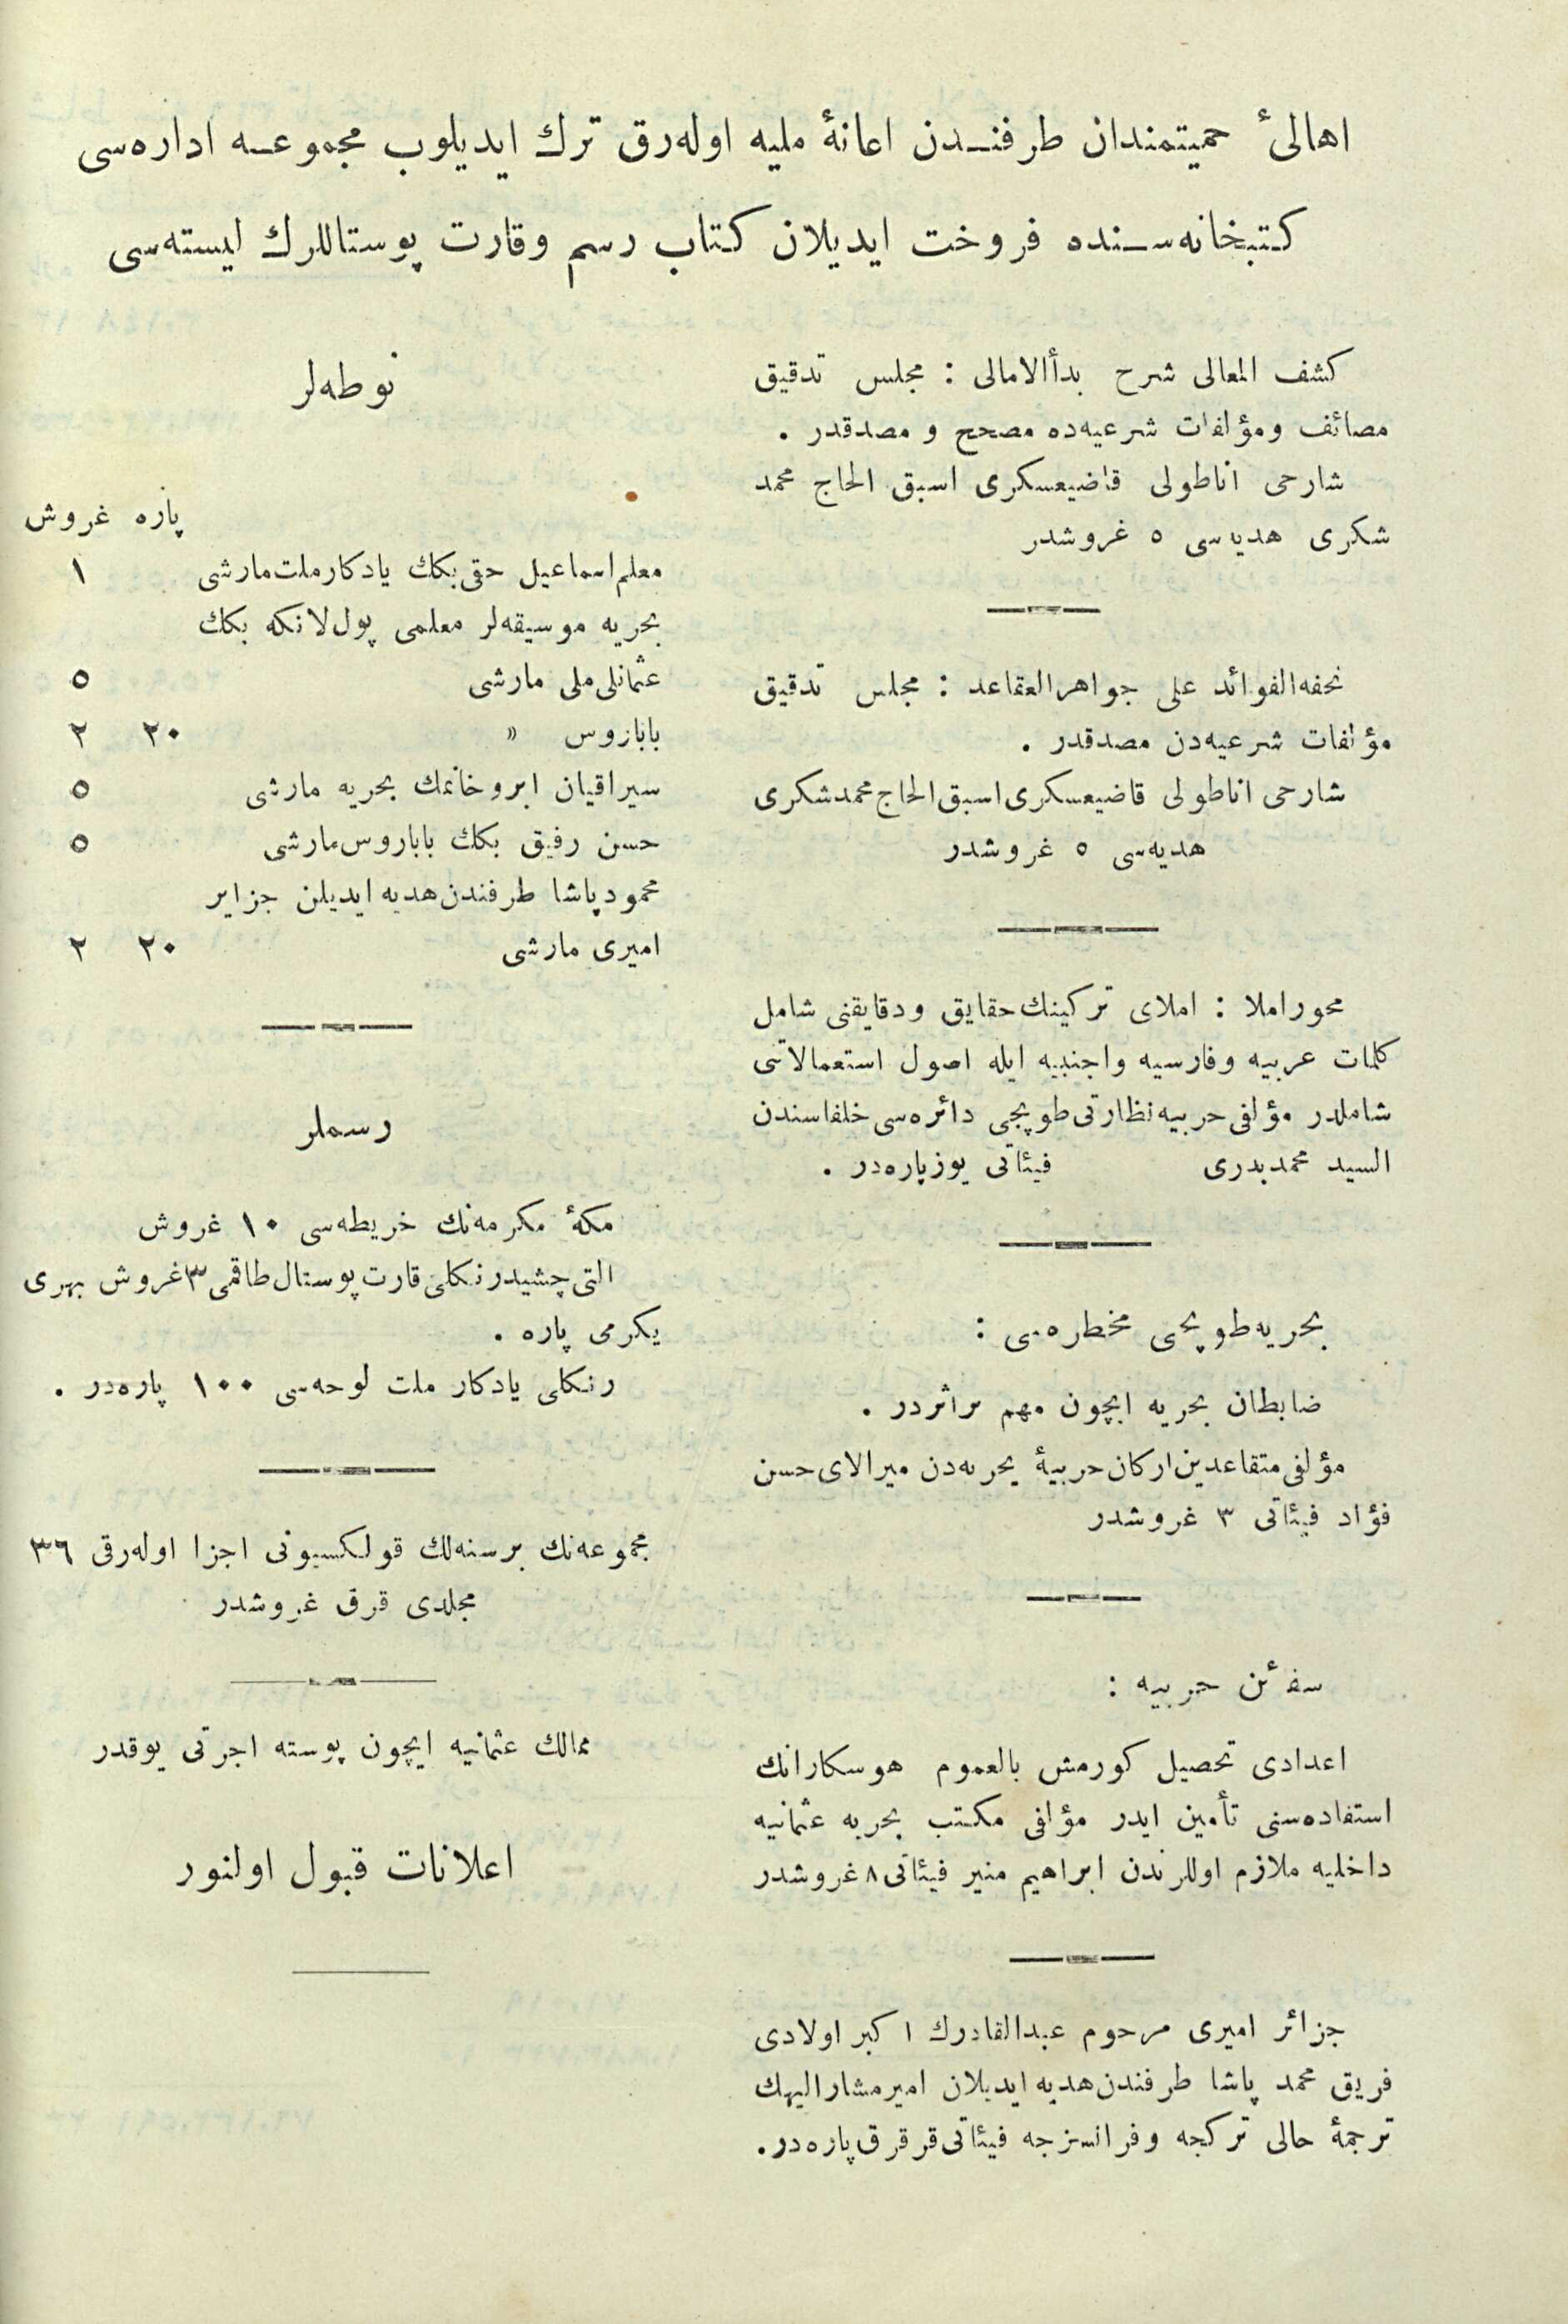 اهالیٔ حمیتمندان طرفنـدن اعانهٔ ملیه اوله‌رق ترك ایدیلوب مجموعـه اداره‌سی
كتبخانه‌سـنده فروخت ایدیلان كتاب رسم وقارت پوستاللرك لیسته‌سی
كشف المعالی شرح بدأالامالی : مجلس تدقیق
مصائف ومؤلفات شرعیه‌ده مصحح و مصدقدر .
شارحی اناطولی قاضیعسكری اسبق الحاج محمد
شكری هدیه سی ٥ غروشدر
تحفه‌الفوائد علی جواهرالعقاعد : مجلس تدقیق
مؤلفات شرعیه‌دن مصدقدر .
شارحی اناطولی قاضیعسكری اسبق الحاج محمد شكری
هدیه‌سی ٥ غروشدر
محوراملا : املای تركینك حقایق ودقایقنی شامل
كلمات عربیه وفارسیه واجنبیه ایله اصول استعمالاتی
شاملدر مؤلفی حربیه نظارتی طوپجی دائره‌سی خلفاسندن
السید محمدبدری فیئاتی یوزپاره‌در .
بحریه طوپجی مخطره‌سی :
ضابطان بحریه ایچون مهم براثردر .
مؤلفی متقاعدین اركان حربیهٔ بحریه‌دن میرالای حسن
فؤاد فیئاتی ٣ غروشدر
سفائن حربیه :
اعدادی تحصیل كورمش بالعموم هوسكارانك
استفاده‌سنی تأمین ایدر مؤلفی مكتب بحریه عثمانیه
داخلیه ملازم اوللرندن ابراهیم منیر فیئاتی ٨ غروشدر
جزائر امیری مرحوم عبدالقادرك اكبر اولادی
فریق محمد پاشا طرفندن هدیه ایدیلان امیرمشارالیهك
ترجمهٔ حالی تركجه وفرانسزجه فیئاتی قرقرق پاره‌در.
نوطه‌لر
پاره غروش
معلم اسماعیل حقی بكك یادكارملت مارشی ١
بحریه موسیقه‌لر معلمی پول لانكه بكك
عثمانلی ملی مارشی ٥
بابازوس » ٢٠ ٢
سیراقیان ابروخانمك بحریه مارشی ٥
حسن رفیق بكك باباروس مارشی ٥
محمود پاشا طرفندن هدیه ایدیلن جزایر
امیری مارشی ٢٠ ٢
رسملر
مكهٔ مكرمه‌نك خریطه‌سی ١٠ غروش
التی چشیدرنكلی قارت پوستال طاقمی ٣ غروش بهری
یكرمی پاره .
رنكلی یادكار ملت لوحه‌سی ١٠٠ پاره‌در .
مجموعه‌نك برسنه‌لك قولكسیونی اجزا اوله‌رقی ٣٦
مجلدی قرق غروشدر
ممالك عثمانیه ایچون پوسته اجرتی یوقدر
اعلانات قبول اولنور